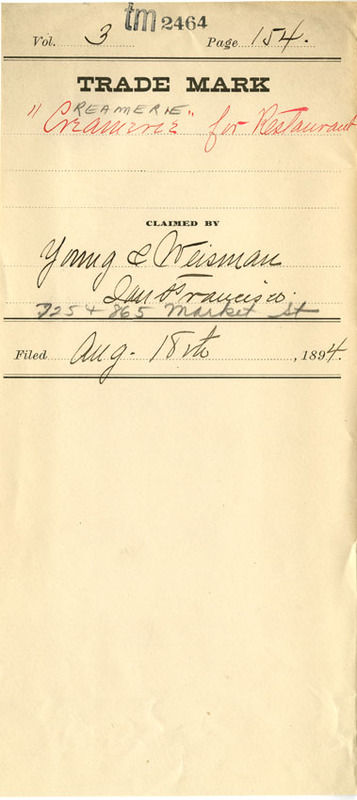 tm 2464
Vol. 3 Page 154.
TRADE MARK
REAMERIE
"Creamerie" for Restaurant
CLAIMED BY
Young & Weisman
San Francisco.
725 & 865 Market St
Filed Aug. 18th, 1894.